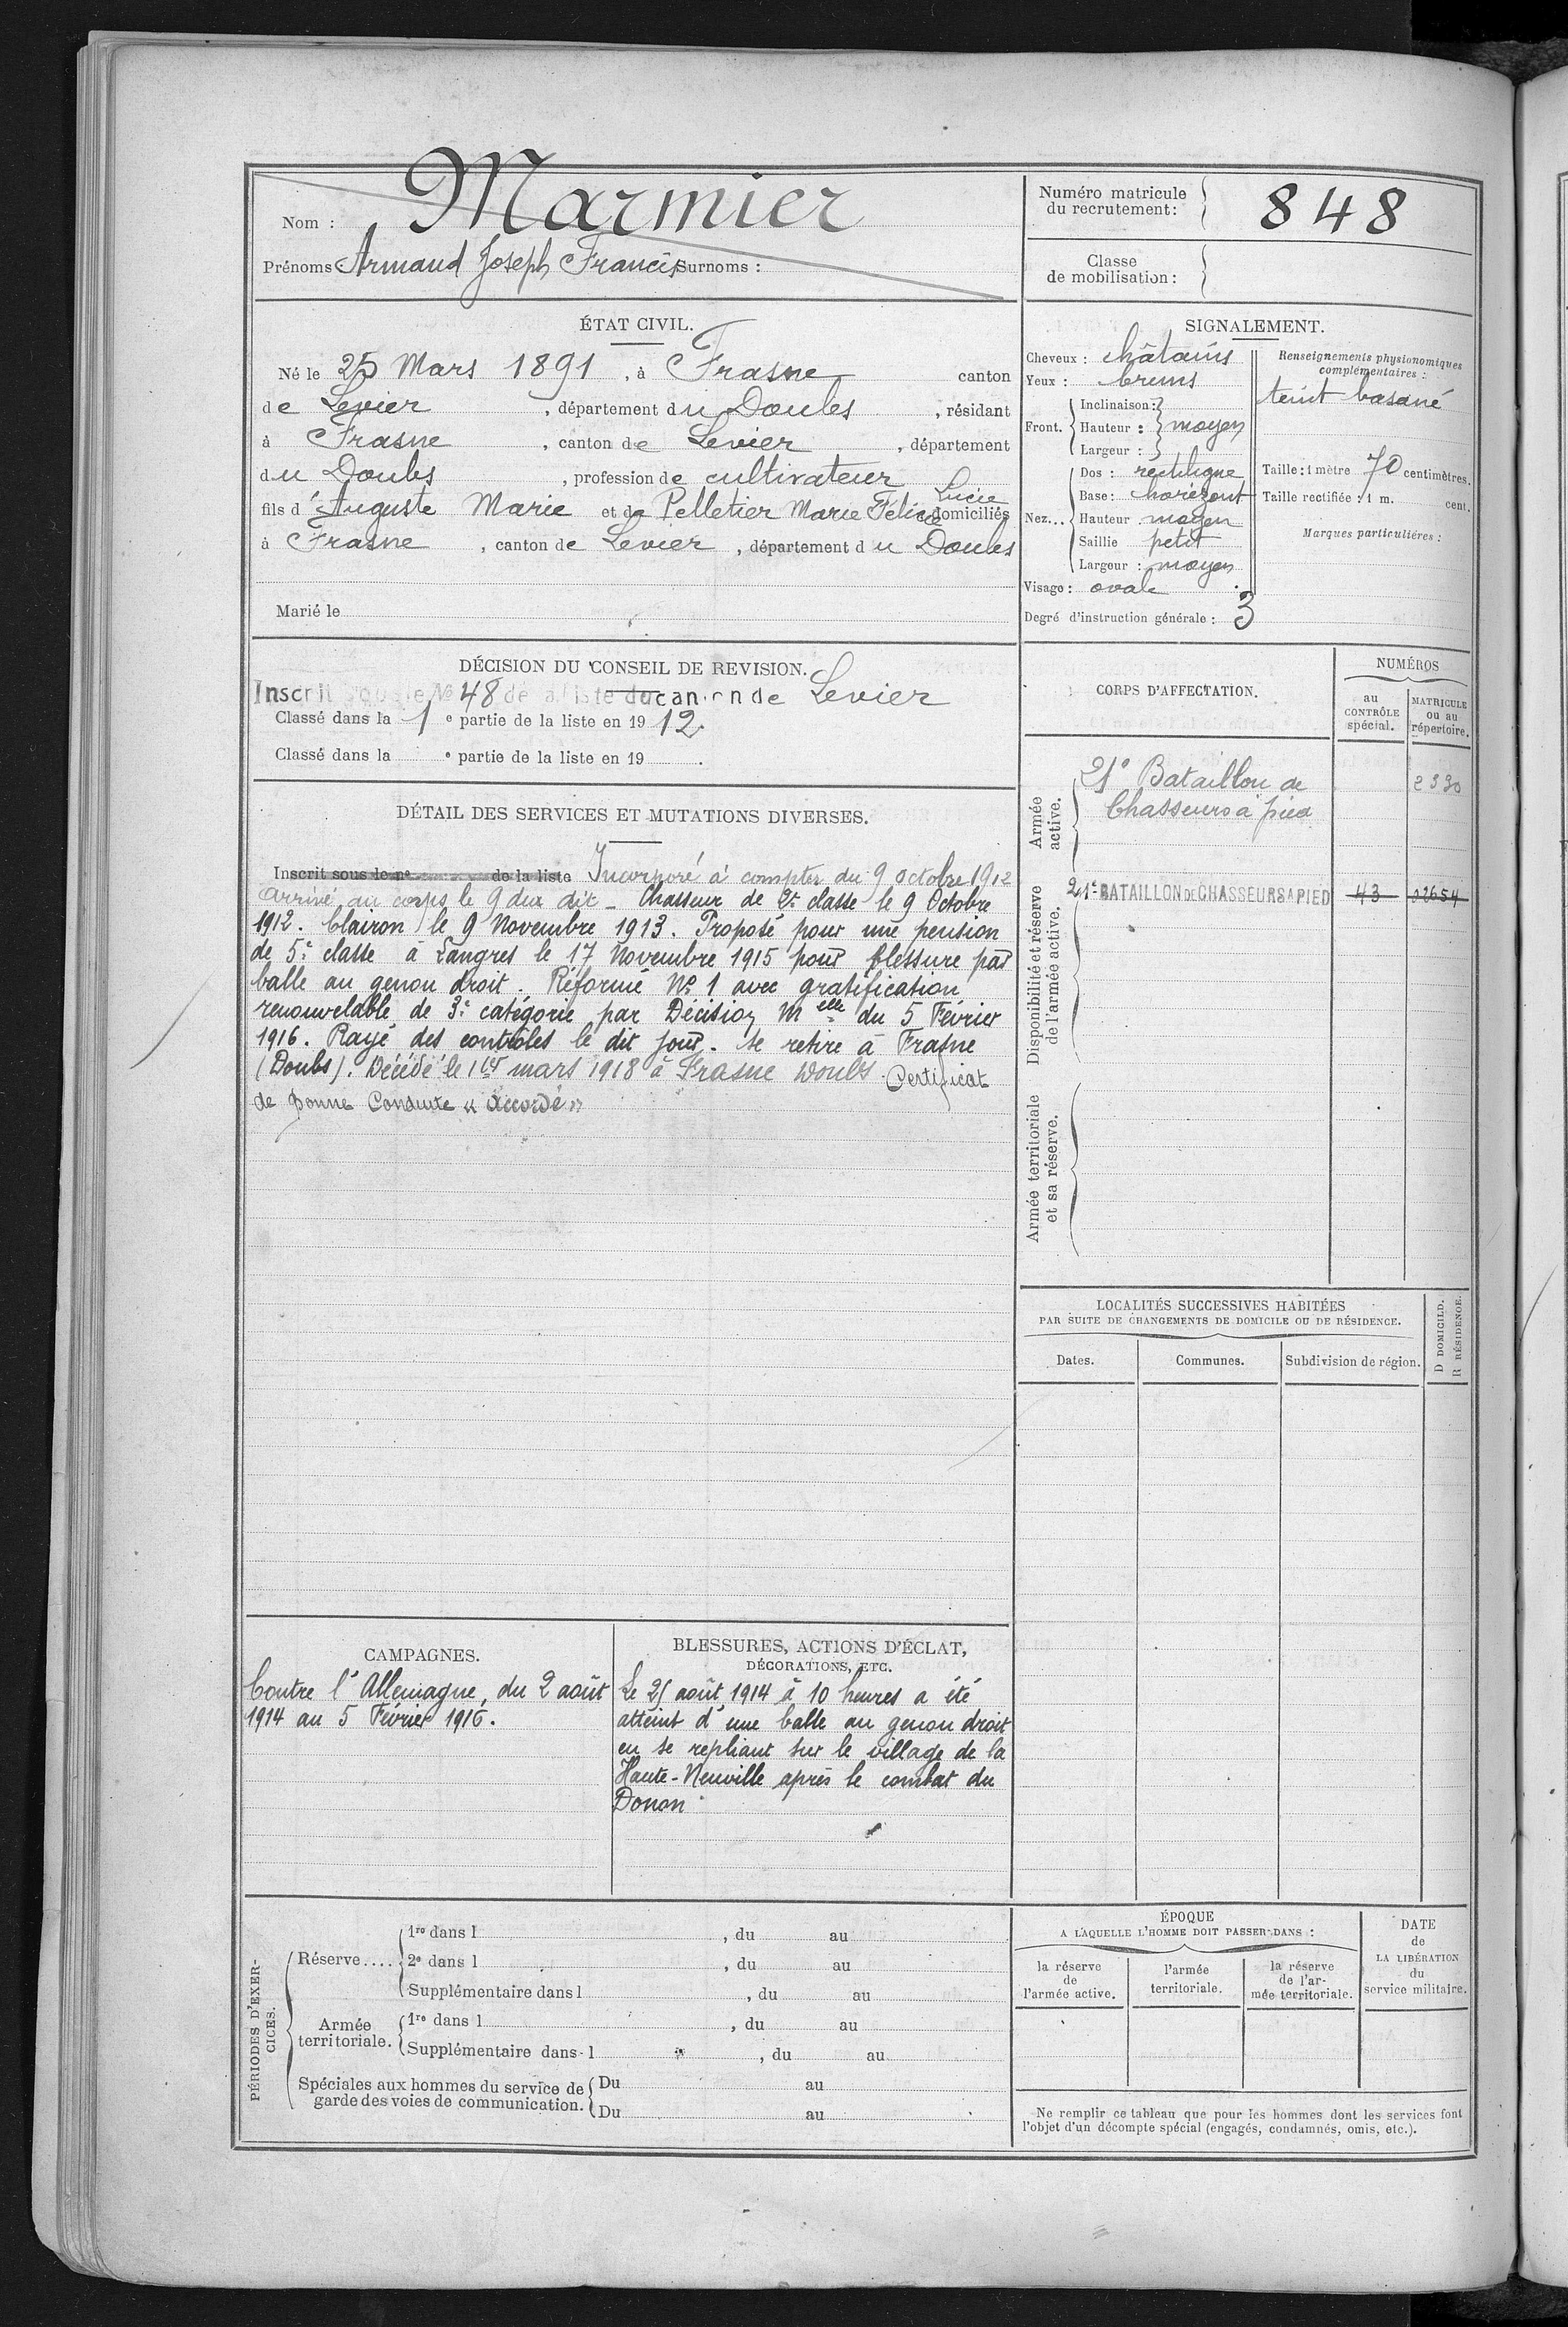 Nom : Marmier
Prénoms : Armand Joseph Francis Surnoms :
Numéro matricule du recrutement : 848
Classe de mobilisation :
ÉTAT CIVIL.
Né le 25 Mars 1891, à Frasne canton
de Levier, département du Doubs, résidant
à Frasne, canton de Levier, département
du Doubs, profession de cultivateur
fils d'Auguste Marie et de Pelletier Marie Félicie Lucie domiciliés
à Frasne, canton de Levier, département du Doubs
Marié le
SIGNALEMENT.
Cheveux : châtains
Yeux : bruns
Front. Inclinaison :
Hauteur : moyen
Largeur :
Nez... Dos : rectiligne
Base : horizont
Hauteur moyen
Saillie petit
Largeur : moyen
Visage : ovale
Degré d'instruction générale : 3
Renseignements physionomiques complémentaires :
teint basané
Taille : 1 mètre 70 centimètres.
Taille rectifiée : 1 m. cent.
Marques particulières :
DÉCISION DU CONSEIL DE REVISION.
Inscrit sous le No 48 de la liste du canton de Levier
Classé dans la 1e partie de la liste en 1912.
Classé dans la e partie de la liste en 19 .
DÉTAIL DES SERVICES ET MUTATIONS DIVERSES.
Inscrit sous le no de la liste Incorporé à compter du 9 octobre 1912
arrivé au corps le 9 dux dit - Chasseur de 2e classe le 9 Octobre
1912. Clairon le 9 Novembre 1913. Proposé pour une pension
de 5e classe à Langres le 17 Novembre 1915 pour blessure par
balle au genou droit. Réformé No 1 avec gratification
renouvelable de 3e catégorie par Décision Melle du 5 Février
1916. Rayé des contrôles le dit jour. Se retire à Frasne
(Doubs). Décédé le 1er mars 1918 à Frasne Doubs. Certificat
de Bonne Conduite « Accordé »
CORPS D'AFFECTATION.
NUMÉROS
au CONTRÔLE spécial.
MATRICULE ou au répertoire.
Armée active.
21e Bataillon de 2330
Chasseurs à pied
Disponibilité et réserve de l'armée active.
21e BATAILLON DE CHASSEURS A PIED 43 02654
Armée territoriale et sa réserve.
LOCALITÉS SUCCESSIVES HABITÉES
PAR SUITE DE CHANGEMENTS DE DOMICILE OU DE RÉSIDENCE.
Dates. Communes. Subdivision de région. D DOMICILD. R RÉSIDENCE.
CAMPAGNES.
Contre l'Allemagne, du 2 août
1914 au 5 Février 1916.
BLESSURES, ACTIONS D'ÉCLAT,
DÉCORATIONS, ETC.
Le 25 août 1914 à 10 heures a été
atteint d'une balle au genou droit
en se repliant sur le village de la
Haute-Neuville après le combat du
Donon
PÉRIODES D'EXERCICES.
Réserve.... 1re dans l , du au
2e dans l , du au
Supplémentaire dans l , du au
Armée territoriale. 1re dans l , du au
Supplémentaire dans l , du au
Spéciales aux hommes du service de garde des voies de communication. Du au
Du au
ÉPOQUE
A LAQUELLE L'HOMME DOIT PASSER DANS :
la réserve de l'armée active.
l'armée territoriale.
la réserve de l'armée territoriale.
DATE de LA LIBÉRATION du service militaire.
Ne remplir ce tableau que pour les hommes dont les services font
l'objet d'un décompte spécial (engagés, condamnés, omis, etc.).